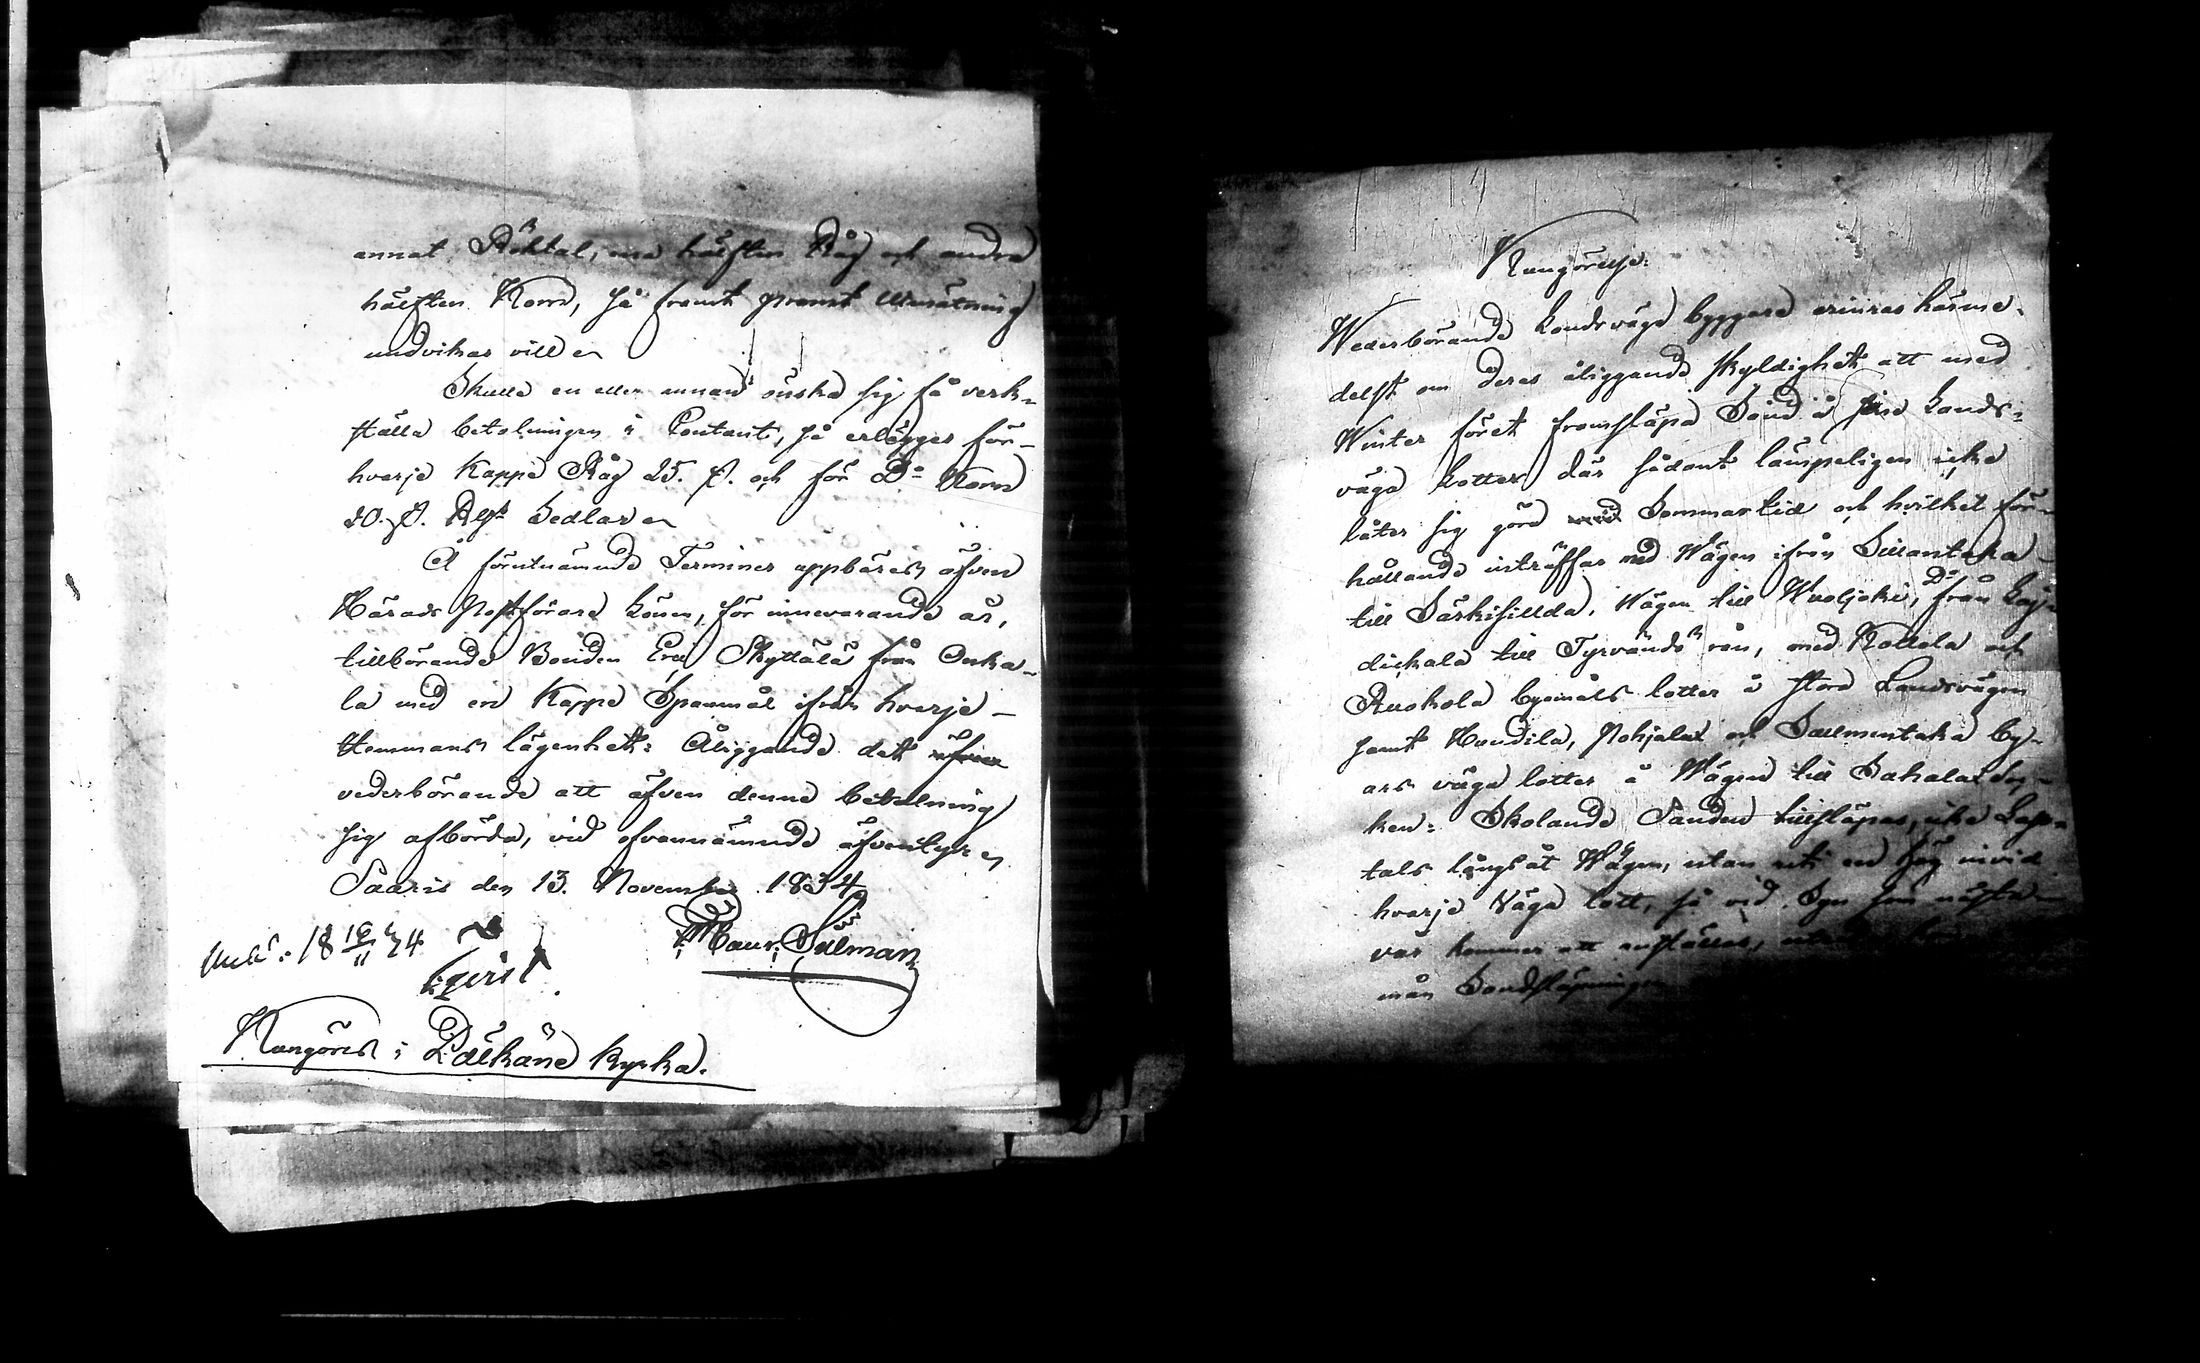 annat Röktal, ena hälften Råg och andra
hälften Korn, så framt promt Utmätning
undvikas vill.
Skulle en eller annan önska sig få verk-
ställa betalningen i Contant, så erlägges för
hvarje Kappe Råg 25. β. och för Do Korn
20. β. Rgs Sedlar.
Å förutnämnde Terminer uppbäres äfven
Härads Postförare Lönen, för innevarande år,
tillhörande Bonden Eric Skyttälä från Onka-
la med en Kappe Spannmål ifrån hvarje
Hemmans lägenhet: Åliggande det äfven
vederbörande att äfven denne betalning
sig afbörda, vid ofvannämnde äfventyr.
Saaris den 13. November 1834
Maur: Silman
18 16/11 34
Kungöres i Pälkäne kyrka.
Kungörelse:
Wederbörande Landsväga byggare erinras härme-
delst om deras åliggande skyldighet att med
Winter föret framsläpa Sand å sine Lands-
väga Lotter där sådant lämpeligen icke
låter sig göra med Sommartid och hvilket för-
hållande inträffar med Wägen ifrån Sillantaka
till Särkisillda, Wägen till Wuoljoki, Do från Lai-
dickala till Tyrvändö rån, med Kollola och
Ruokola byemäls lotter å stora Landsvägen
samt Haudila, Pohjalax och Salmentaka by-
ars väga lotter å Wägen till Sahalax
ken: Skolande Sanden tillsläpas, icke
tals långsåt Wägen, utan uti en hög invid
hvarje Väga lott, så vid Syn som nästa
vår kommer att anställas,
mån Sandsläpningen